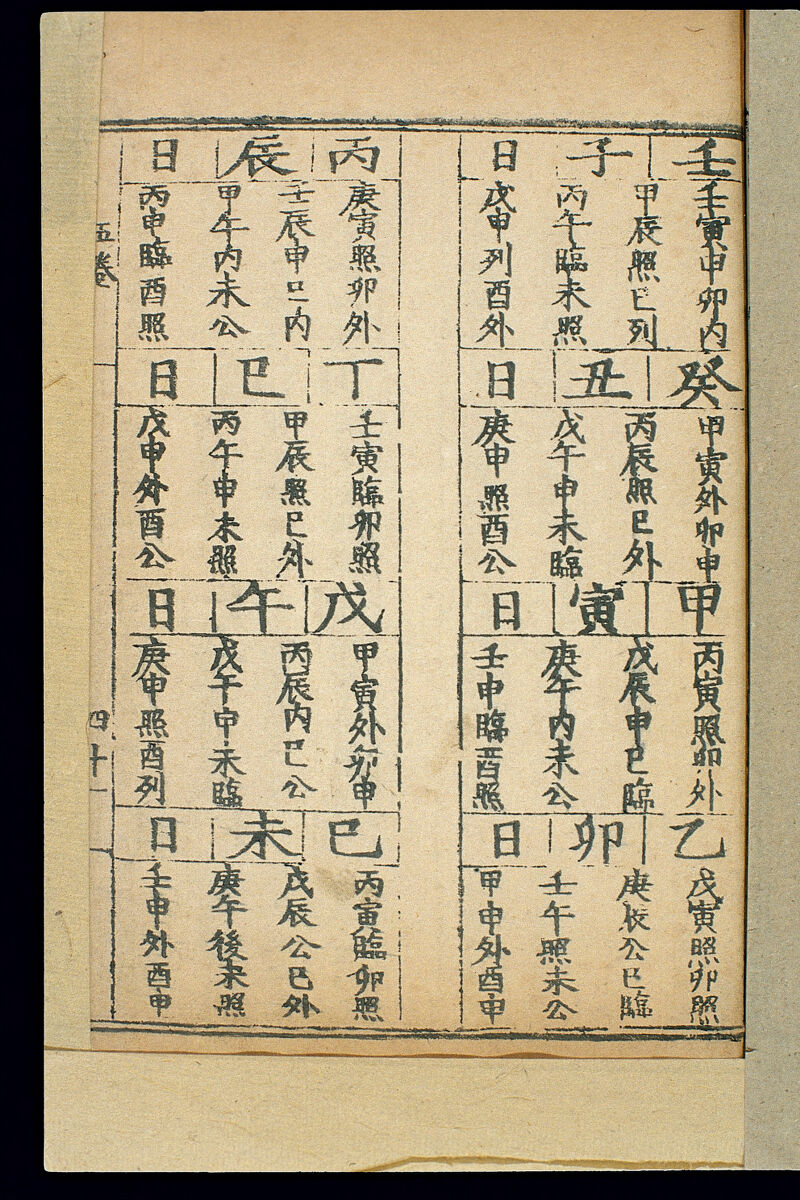 壬子日
壬寅申卯内
甲辰照巳列
丙午臨未照
戊申列酉外
癸丑日
甲寅外卯申
丙辰照巳外
戊午申未臨
庚申照酉公
甲寅日
丙寅照卯外
戊辰申巳臨
庚午内未公
壬申臨酉照
乙卯日
戊寅照卯照
庚辰公巳臨
壬午照未公
甲申外酉申
丙辰日
庚寅照卯外
壬辰申巳内
甲午内未公
丙申臨酉照
丁巳日
壬寅臨卯照
甲辰照巳外
丙午申未照
戊申外酉公
戊午日
甲寅外卯申
丙辰内巳公
戊午申未臨
庚申照酉列
巳未日
丙寅臨卯照
戊辰公巳外
庚午後未照
壬申外酉申
五卷
四十一